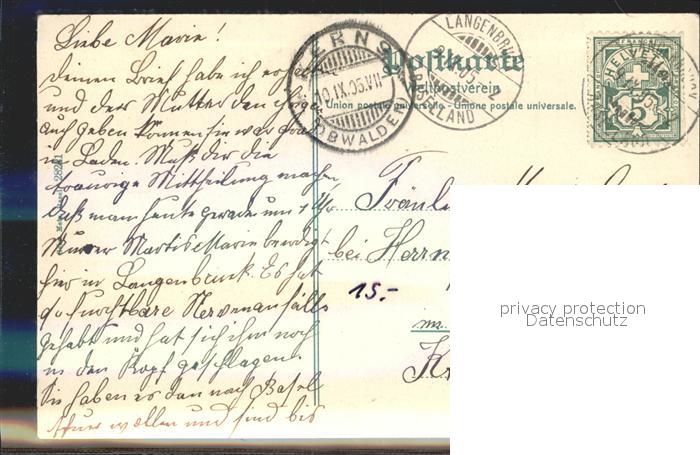 Liebe Marie!
Deinen Brief habe ich er
und der Mutter den
auch geben können sie war
im Laden. Muß dir die
traurige Mittheilung machen
daß man heute gerade um 1 Uhr
Maurer Martis Marie beerdigt
hier in Langenbruck. Es hat
so furchtbare Nervenanfälle
gehabt und hat sich ihm noch
in den Kopf geschlagen.
Sie haben es dan nach Basel
thun wollen und sind bis
Postkarte
Weltpostverein
Union postale universelle. - Unione postale universale.
KERNS
10.IX.05.VII
(OBWALDEN)
LANGENBRUCK
BASELLAND
FRANCO
HELVETIA
5
Fräulein
bei Herrn
15.-
im
K
28241
privacy protection
Datenschutz